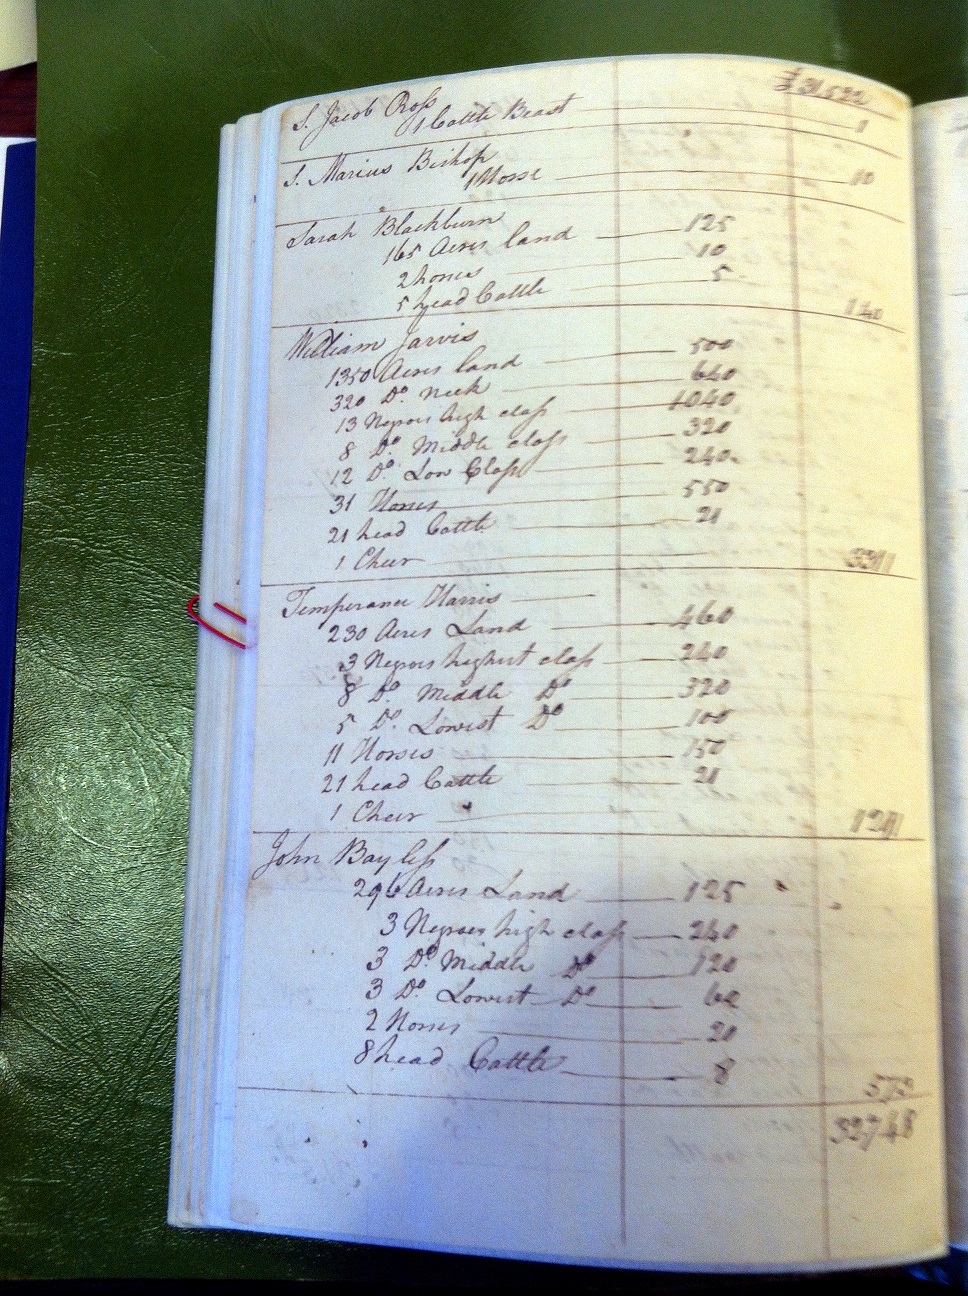 £ 31522
S. Jacob Ross
1 Cattle Beast 1
S. Marius Bishop
1 Horse 10
Sarah Blackburn
165 Acres land 125
2 horses 10
5 head Cattle 5 140
William Jarvis
1350 Acres land 500
320 Do. neck 640
13 Negroes high class 1040
8 Do. Middle class 320
12 Do Low Class 240
31 Horses 550
21 head Cattle 21
1 Cheer 3311
Temperance Harris
230 Acres Land 460
3 Negroes highest class 240
8 Do. Middle Do 320
5 Do. Lowest Do 100
11 Horses 150
21 head Cattle 21
1 Cheer 1291
John Bayless
296 Acres Land 125
3 Negroes high class 240
3 Do. Middle Do 120
3 Do. Lowest Do 60
2 Horses 20
8 head Cattle 8
573
32748